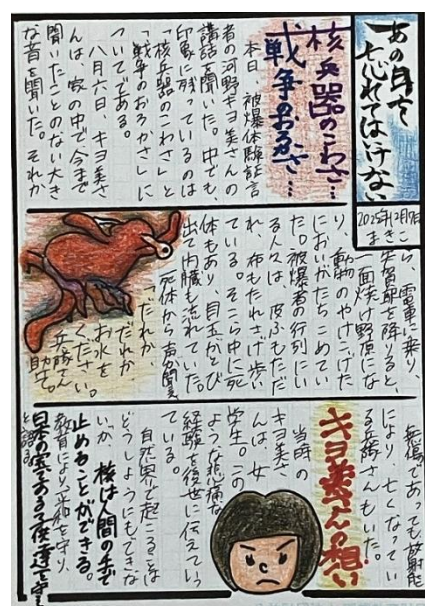 あの日を
忘れてはいけない
2025年12月9日
核兵器のこわさ…
戦争のおろかさ…
本日、被爆体験証言
者の河野キヨ美さんの
講話を聞いた。中でも、
印象に残っているのは
「核兵器のこわさ」と
「戦争のおろかさ」に
ついてである。
八月六日、キヨ美さ
んは、家の中で今まで
聞いたことのない大き
な音を聞いた。それか
ら、電車に乗り、
矢賀駅を降りると、
一面焼け野原にな
り、動物のやけこげた
においがたちこめてい
た。被爆者の行列にい
る人々は、皮ふもただ
れ、布もたれさげ歩い
ている。そこら中に死
体もあり、目玉がとび
出て内臓も流れていた。
死体から声が聞え
「だれか、
だれか、
お水を
ください。
兵隊さん
助けて。」
無傷であっても放射能
により、亡くなってい
る兵隊さんもいた。
キヨ美さんの想い
当時の
キヨ美さ
んは、女
学生。この
ような悲痛な
経験を後世に伝えてい
ている。
自然界で起こることは
どうしようにもできな
いが、核は人間の手で
止めることができる。
教育により平和を守り、
日本の宝である
と語る。